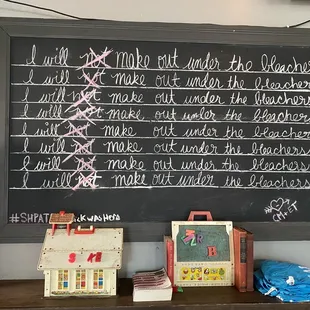 I will not make out under the bleachers
I will not make out under the bleachers
I will not make out under the bleachers
I will not make out under the bleachers
I will not make out under the bleachers
I will not make out under the bleachers
I will not make out under the bleachers
I will not make out under the bleachers
#SHPAT